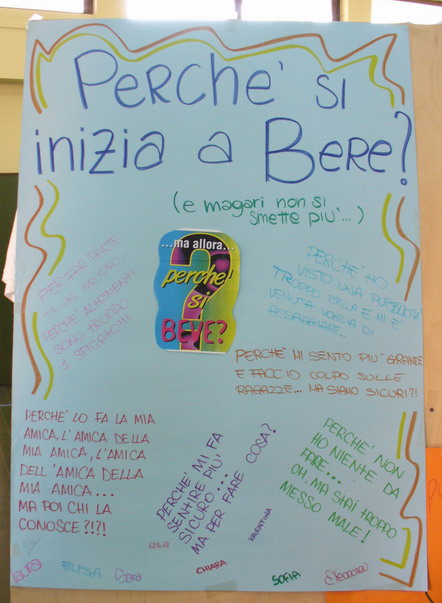 PERCHE' SI
INIZIA A BERE?
(e magari non si
smette più...)
...ma allora...
perche'
si
BEVE?
?
PER FAR PARTE
DI UN GRUPPO
PERCHE' ALTRIMENTI
SONO TROPPO
SFIGATO!!!
PERCHE' HO
VISTO UNA PUBBLICITÀ
TROPPO BELLA E MI È
VENUTA VOGLIA DI
ASSAGGIARE...
PERCHE' MI SENTO PIU' GRANDE
E FACCIO COLPO SULLE
RAGAZZE... MA SIAMO SICURI?!
PERCHE' LO FA LA MIA
AMICA, L'AMICA DELLA
MIA AMICA, L'AMICA
DELL'AMICA DELLA
MIA AMICA...
MA POI CHI LA
CONOSCE?!?!
PERCHE' MI FA
SENTIRE PIU'
SICURO...
MA PER FARE COSA?
PERCHE' NON
HO NIENTE DA
FARE...
OH, MA STAI TROPPO
MESSO MALE!
ELISA
Sara
CHIARA
VALENTINA
SOFIA
Eleonora